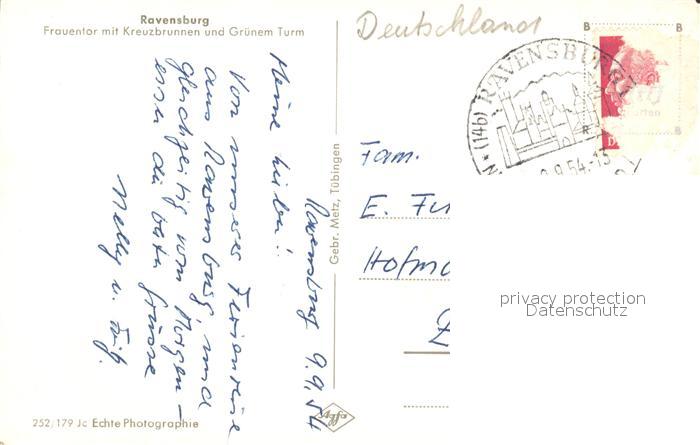 Ravensburg
Frauentor mit Kreuzbrunnen und Grünem Turm
Ravensburg 9.9.54
Meine Lieben!
Von unserer Ferienreise
aus Ravensburg, und
gleichzeitig vom Morgen-
essen die besten Grüsse
Nelly u.
252/179 Jc Echte Photographie
Gebr. Metz, Tübingen
Agfa
Deutschland
B B
R
(14b) RAVENSBURG
9.54-15
Fam.
E.
privacy protection
Datenschutz